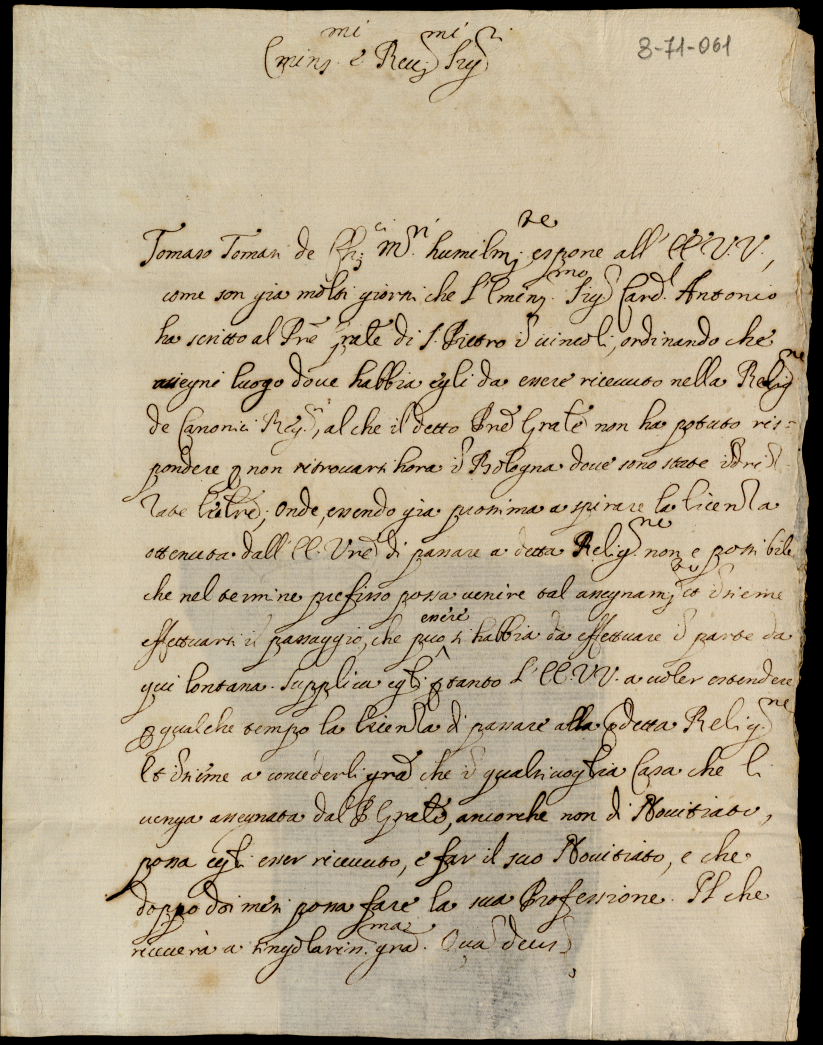 8-71-061
Emin.mi e Reu.mi Sig.ri
Tomaso Tomasi de Ch.ci M.ri humilm.te espone all' EE. VV.,
come son gia molti giorni che L'Emin.mo Sig.r Card.l Antonio
ha scritto al Pre Grale di S. Pietro in uincoli, ordinando che
assegni luogo doue habbia egli da essere riceuuto nella Relig.ne
de Canonici Reg.ri, al che il detto Pre Grale non ha potuto ris=
pondere p non ritrouarsi hora in Bologna doue sono state indriz=
zate le lre; Onde, essendo gia prossima a spirare la licenza
ottenuta dall' EE. Vre di passare a detta Relig.ne non e possibile
che nel termine prefisso possa uenire tal assegnam.to et insieme
effettuarsi il passaggio, che puo essere si habbia da effettuare in parte da
qui lontana. Supplica egli ptanto L' EE. VV. a uoler estendere
p qualche tempo la licenza di passare alla pdetta Relig.ne
Et insieme a concederli gra che in qualsiuoglia Casa che li
uenga assegnata dal P Grale, ancorche non di Nouitiato,
possa egli esser riceuuto, e far il suo Nouitiato, e che
doppo doi mesi possa fare la sua Professione. Il che
riceuerà a singolariss.ma gra. Quas deus